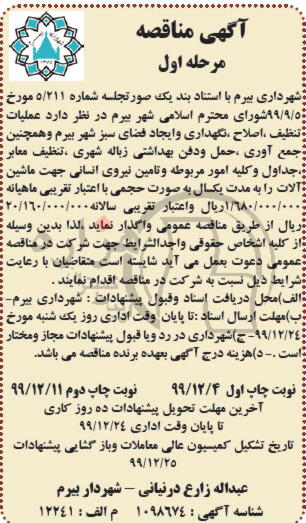 آگهی مناقصه
مرحله اول
شهرداری بیرم با استناد بند یک صورتجلسه شماره ۵/۲۱۱ مورخ
۹۹/۹/۵شورای محترم اسلامی شهر بیرم در نظر دارد عملیات
تنظیف ،اصلاح ،نگهداری وایجاد فضای سبز شهر بیرم وهمچنین
جمع آوری ،حمل ودفن بهداشتی زباله شهری ،تنظیف معابر
،جداول وکلیه امور مربوطه وتامین نیروی انسانی جهت ماشین
آلات را به مدت یکسال به صورت حجمی با اعتبار تقریبی ماهیانه
۱/۶۸۰/۰۰۰/۰۰۰ریال واعتبار تقریبی سالانه۲۰/۱۶۰/۰۰۰/۰۰۰
ریال از طریق مناقصه عمومی واگذار نماید .لذا بدین وسیله
از کلیه اشخاص حقوقی واجدالشرایط جهت شرکت در مناقصه
عمومی دعوت بعمل می آید شایسته است متقاضیان با رعایت
شرایط ذیل نسبت به شرکت در مناقصه اقدام نمایند .
الف)محل دریافت اسناد وقبول پیشنهادات : شهرداری بیرم-
ب)مهلت ارسال اسناد :تا پایان وقت اداری روز یک شنبه مورخ
۹۹/۱۲/۲۴-ج)شهرداری در رد ویا قبول پیشنهادات مجاز ومختار
است .-د)هزینه درج آگهی بعهده برنده مناقصه می باشد.
نوبت چاپ اول ۹۹/۱۲/۴ نوبت چاپ دوم ۹۹/۱۲/۱۱
آخرین مهلت تحویل پیشنهادات ده روز کاری
تا پایان وقت اداری ۹۹/۱۲/۲۴
تاریخ تشکیل کمیسیون عالی معاملات وباز گشایی پیشنهادات
۹۹/۱۲/۲۵
عبداله زارع درنیانی – شهردار بیرم
شناسه آگهی : ۱۰۹۸۶۷۴ م الف : ۱۲۲۴۱